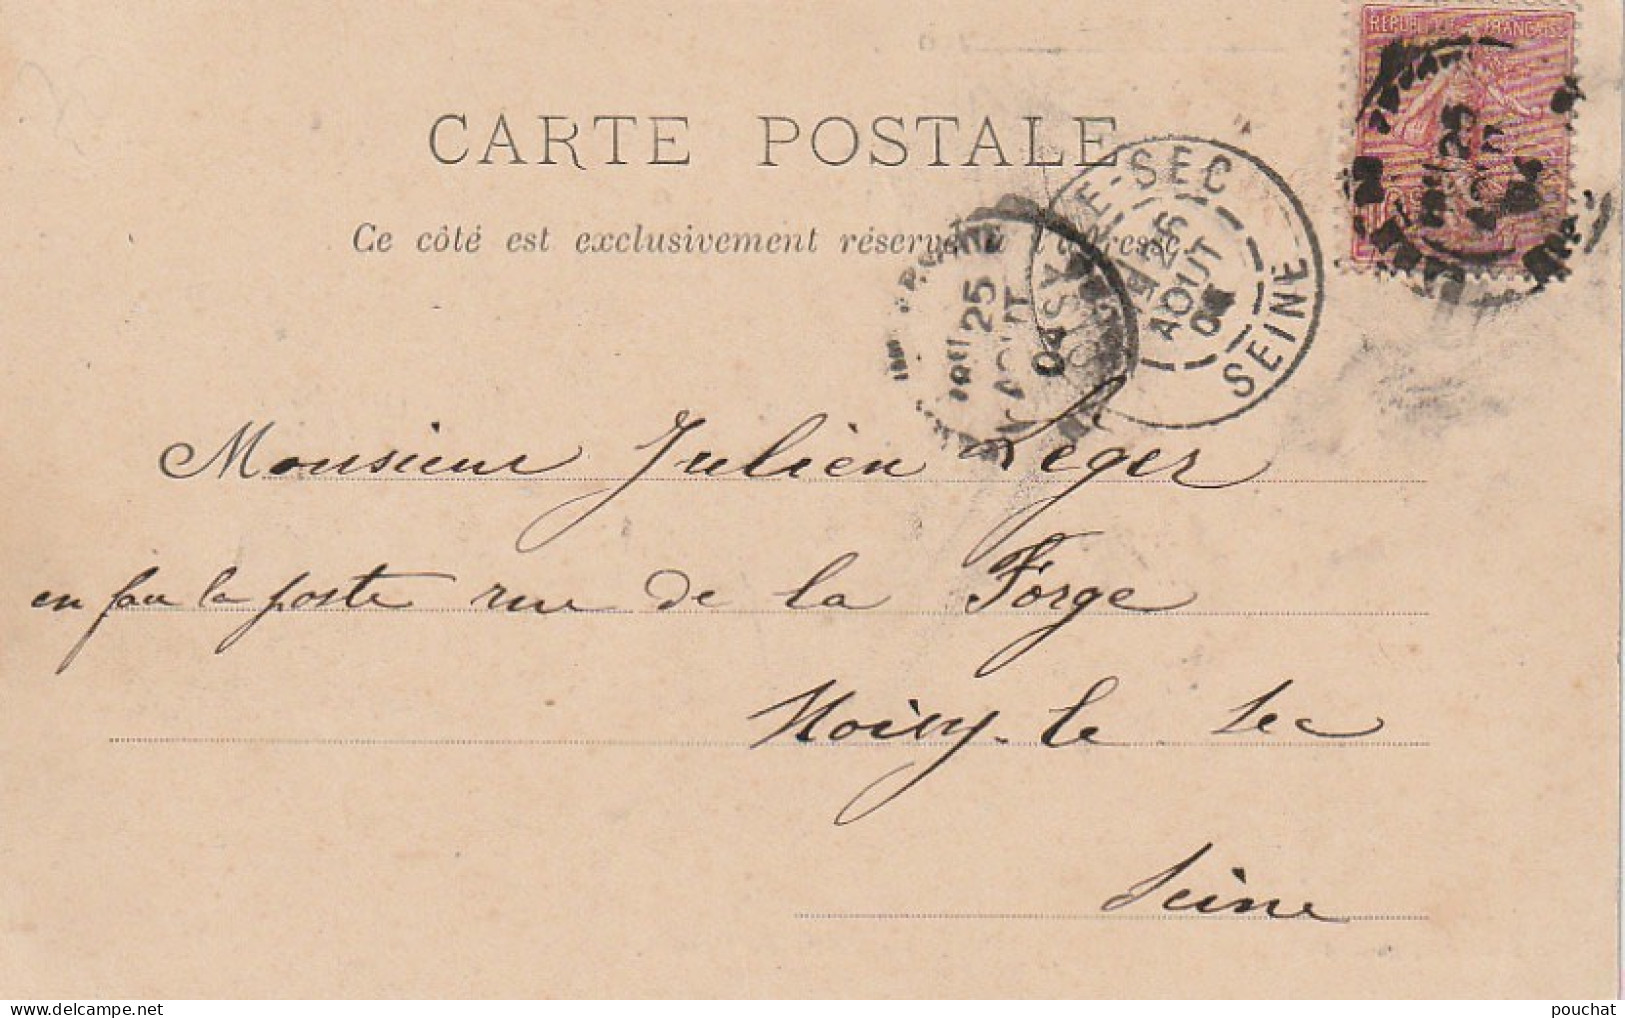 RÉPUBLIQUE FRANÇAISE
CARTE POSTALE
Ce côté est exclusivement réservé à l'adresse.
25
AOUT
04
SY-LE-SEC
26
AOUT
04
SEINE
25
Monsieur Julien Léger
en face la poste rue de la Forge
Noisy-le Sec
Seine
pouchat